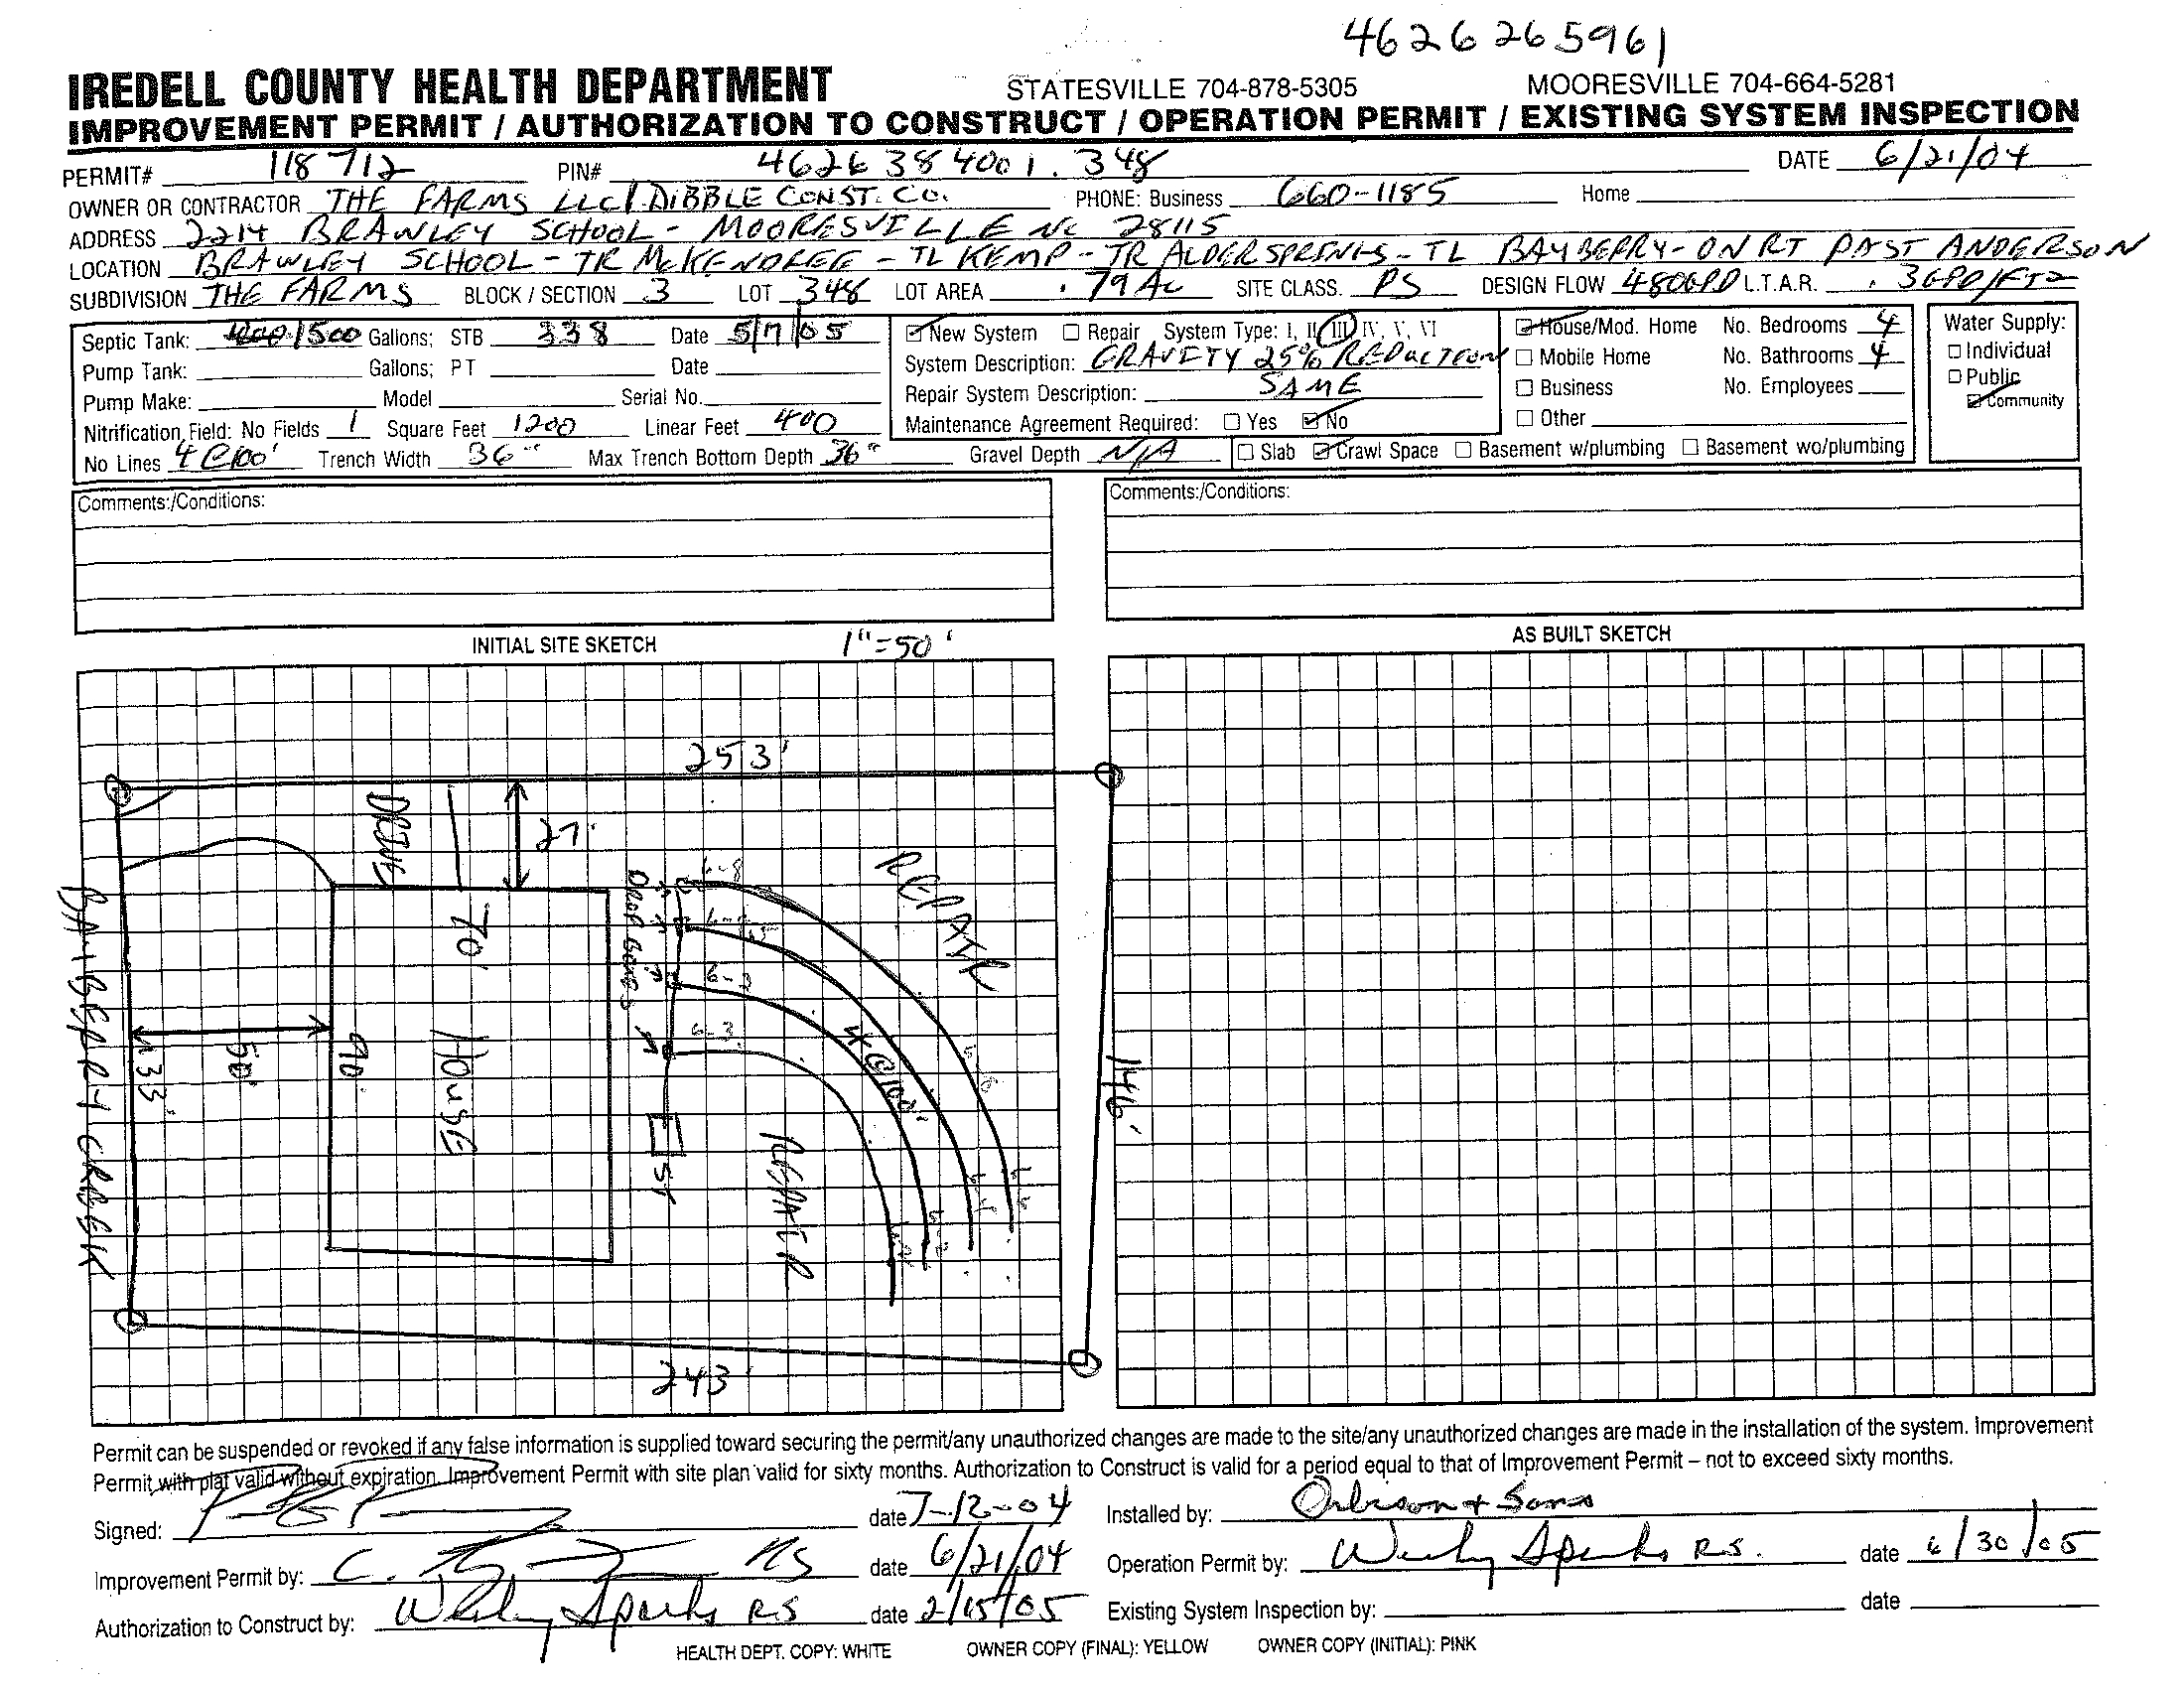 4626 26 5961
IREDELL COUNTY HEALTH DEPARTMENT STATESVILLE 704-878-5305 MOORESVILLE 704-664-5281
IMPROVEMENT PERMIT / AUTHORIZATION TO CONSTRUCT / OPERATION PERMIT / EXISTING SYSTEM INSPECTION
PERMIT# 118712 PIN# 4626 38 4001.348 DATE 6/21/04
OWNER OR CONTRACTOR THE FARMS LLC/DIBBLE CONST. CO. PHONE: Business 660-1185 Home
ADDRESS 2214 BRAWLEY SCHOOL - MOORESVILLE NC 28115
LOCATION BRAWLEY SCHOOL - TR McKENDREE - TL KEMP - TR ALDER SPRINGS - TL BAYBERRY - ON RT PAST ANDERSON
SUBDIVISION THE FARMS BLOCK / SECTION 3 LOT 348 LOT AREA .79 AC SITE CLASS. PS DESIGN FLOW 480GPD L.T.A.R. .3GPD/FT2
Septic Tank: 1500 Gallons; STB 338 Date 5/7/05
Pump Tank: Gallons; PT Date
Pump Make: Model Serial No.
Nitrification Field: No Fields 1 Square Feet 1200 Linear Feet 400
No Lines 4@100' Trench Width 36" Max Trench Bottom Depth 36" Gravel Depth N/A
New System Repair System Type: I, II, III, IV, V, VI
System Description: GRAVITY 25% REDUCTION
Repair System Description: SAME
Maintenance Agreement Required: Yes No
House/Mod. Home No. Bedrooms 4
Mobile Home No. Bathrooms 4
Business No. Employees
Other
Slab Crawl Space Basement w/plumbing Basement wo/plumbing
Water Supply:
Individual
Public
Community
Comments:/Conditions:
Comments:/Conditions:
INITIAL SITE SKETCH 1"=50'
AS BUILT SKETCH
253'
DRIVE
27'
REPAIR
DROP BOXES
6-8
70'
6-3
BAYBERRY CREEK
133'
50'
90'
HOUSE
4@100'
146'
ST
REPAIR
243'
Permit can be suspended or revoked if any false information is supplied toward securing the permit/any unauthorized changes are made to the site/any unauthorized changes are made in the installation of the system. Improvement
Permit with plat valid without expiration. Improvement Permit with site plan valid for sixty months. Authorization to Construct is valid for a period equal to that of Improvement Permit – not to exceed sixty months.
Signed: date 7-12-04
Installed by: Orbison + Sons
Improvement Permit by: C. RS date 6/21/04
Operation Permit by: Wesley Sparks R.S. date 6/30/05
Authorization to Construct by: Wesley Sparks RS date 2/15/05
Existing System Inspection by: date
HEALTH DEPT. COPY: WHITE OWNER COPY (FINAL): YELLOW OWNER COPY (INITIAL): PINK